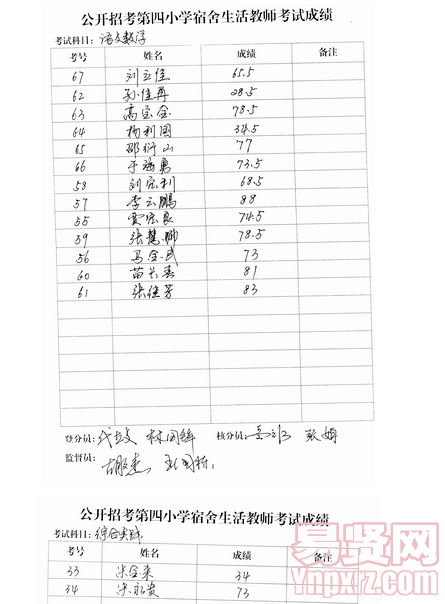 公开招考第四小学宿舍生活教师考试成绩
考试科目：语文数学
考号 姓名 成绩 备注
67 刘立佳 65.5
62 孙佳再 28.5
63 高宝金 78.5
64 杨利国 34.5
65 邵衍山 77
66 于海勇 73.5
58 刘宏利 68.5
57 李云鹏 88
55 贾宏良 74.5
59 张慧卿 78.5
56 马金武 73
60 苗长春 81
61 张继芳 83
登分员： 核分员：
监督员：
公开招考第四小学宿舍生活教师考试成绩
考试科目：综合实践
考号 姓名 成绩 备注
33 宋金来 34
34 73
易贤网
Ynpxrz.com